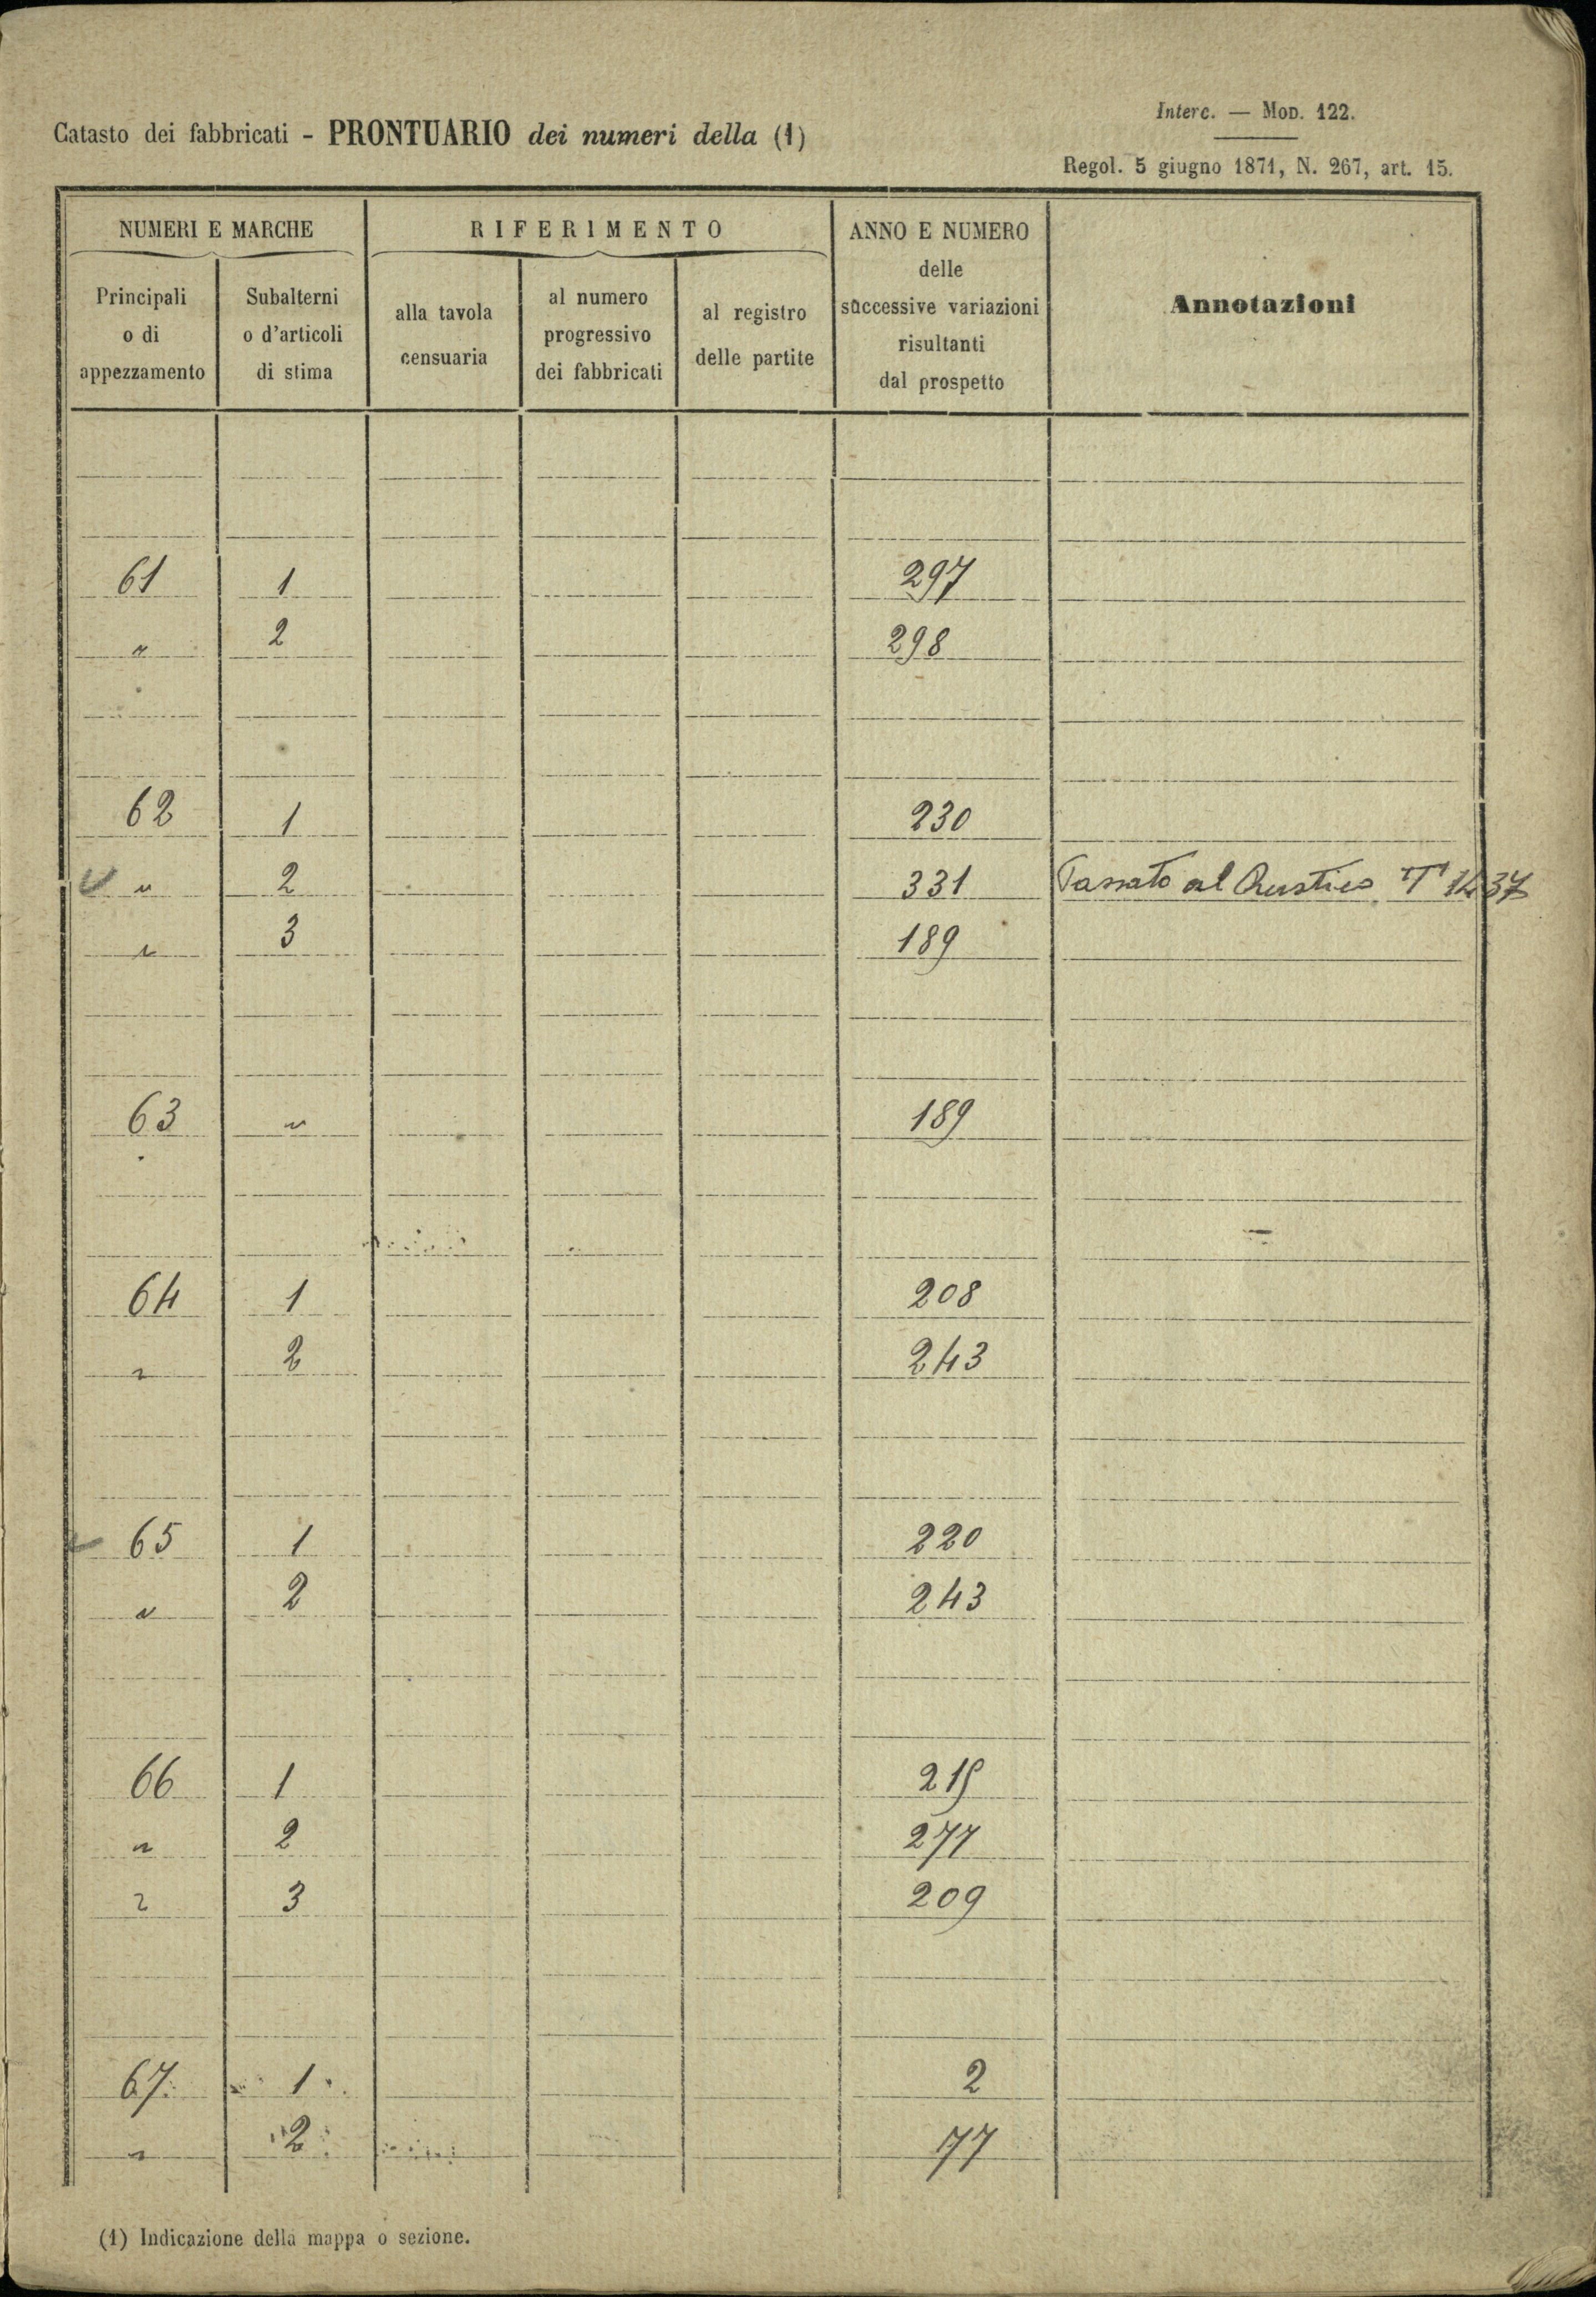 Interc. — Mod. 122.
Catasto dei fabbricati - PRONTUARIO dei numeri della (1)
Regol. 5 giugno 1871, N. 267, art. 15.
NUMERI E MARCHE RIFERIMENTO ANNO E NUMERO delle successive variazioni risultanti dal prospetto Annotazioni
Principali o di appezzamento Subalterni o d'articoli di stima alla tavola censuaria al numero progressivo dei fabbricati al registro delle partite
61 1 297
" 2 298
62 1 230
" 2 331 Passato al Rustico T 1437
" 3 189
63 " 189
64 1 208
" 2 243
65 1 220
" 2 243
66 1
" 2 277
" 3 209
67 1 2
" 2 77
(1) Indicazione della mappa o sezione.